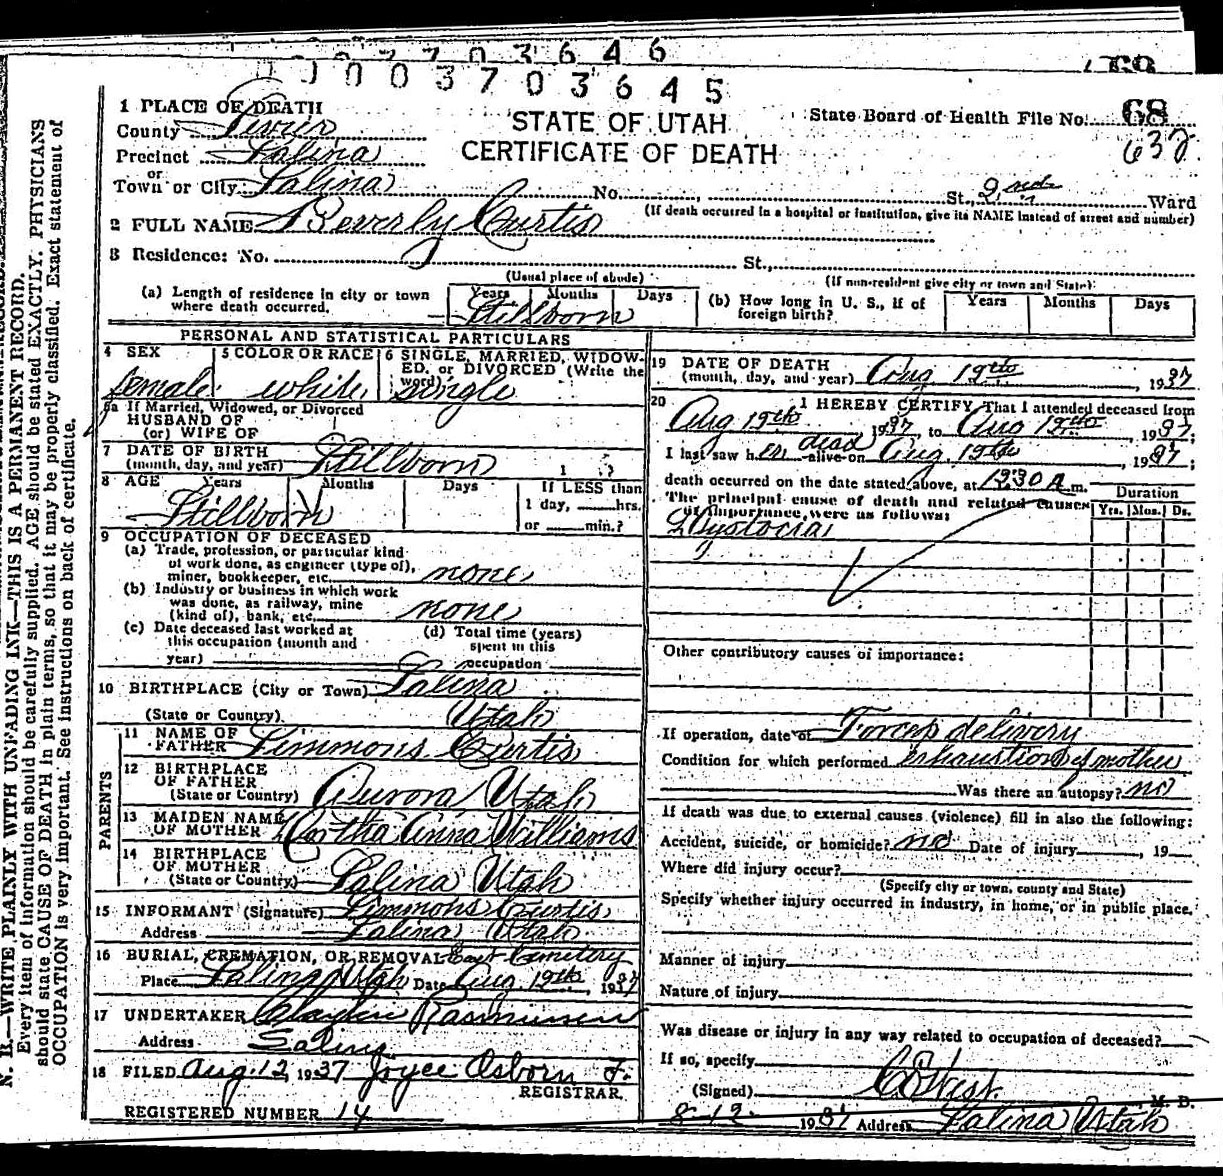 3 6 4 6
0 0 3 7 0 3 6 4 5
68
1 PLACE OF DEATH
County Sevier
Precinct Salina
or
Town or City Salina
STATE OF UTAH
CERTIFICATE OF DEATH
State Board of Health File No. 68
632
No. , St., 2nd Ward
(If death occurred in a hospital or institution, give its NAME instead of street and number)
2 FULL NAME Beverly Curtis
3 Residence: No. St.,
(Usual place of abode) (If non-resident give city or town and State)
(a) Length of residence in city or town where death occurred. Years Months Days
Stillborn
(b) How long in U. S., if of foreign birth? Years Months Days
PERSONAL AND STATISTICAL PARTICULARS
4 SEX female
5 COLOR OR RACE white
6 SINGLE, MARRIED, WIDOWED, or DIVORCED (Write the word) single
5a If Married, Widowed, or Divorced
HUSBAND OF
(or) WIFE OF
7 DATE OF BIRTH
(month, day, and year) Stillborn 1 ?
8 AGE Years Months Days If LESS than
1 day, hrs.
or min.?
Stillborn
9 OCCUPATION OF DECEASED
(a) Trade, profession, or particular kind
of work done, as engineer (type of),
miner, bookkeeper, etc. none
(b) Industry or business in which work
was done, as railway, mine
(kind of), bank, etc. none
(c) Date deceased last worked at
this occupation (month and
year)
(d) Total time (years)
spent in this
occupation
10 BIRTHPLACE (City or Town) Salina
(State or Country) Utah
PARENTS
11 NAME OF
FATHER Simmons Curtis
12 BIRTHPLACE
OF FATHER
(State or Country) Aurora Utah
13 MAIDEN NAME
OF MOTHER Anna Williams
14 BIRTHPLACE
OF MOTHER
(State or Country) Salina Utah
15 INFORMANT (Signature) Simmons Curtis
Address Salina Utah
16 BURIAL, CREMATION, OR REMOVAL East Cemetery
Place Salina Utah Date Aug. 19th, 1937
17 UNDERTAKER Rasmussen
Address Salina
18 FILED Aug. 12, 1937 Joyce Osborn
REGISTRAR.
REGISTERED NUMBER 14
19 DATE OF DEATH
(month, day, and year) Aug 19th, 1937
20 I HEREBY CERTIFY, That I attended deceased from
Aug 19th 1937, to Aug 19th, 1937;
I last saw her dead alive on Aug. 19th, 1937;
death occurred on the date stated above, at 1230 A m.
The principal cause of death and related causes
of importance were as follows:
Duration
Yrs. Mos. Ds.
Dystocia
Other contributory causes of importance:
If operation, date of Forcep delivery
Condition for which performed exhaustion of mother
Was there an autopsy? no
If death was due to external causes (violence) fill in also the following:
Accident, suicide, or homicide? no Date of injury , 19
Where did injury occur?
(Specify city or town, county and State)
Specify whether injury occurred in industry, in home, or in public place.
Manner of injury
Nature of injury
Was disease or injury in any way related to occupation of deceased?
If so, specify
(Signed) West, M. D.
8-12- 1937 Address Salina Utah
N. B.—WRITE PLAINLY WITH UNFADING INK—THIS IS A PERMANENT RECORD.
Every item of information should be carefully supplied. AGE should be stated EXACTLY. PHYSICIANS
should state CAUSE OF DEATH in plain terms, so that it may be properly classified. Exact statement of
OCCUPATION is very important. See instructions on back of certificate.